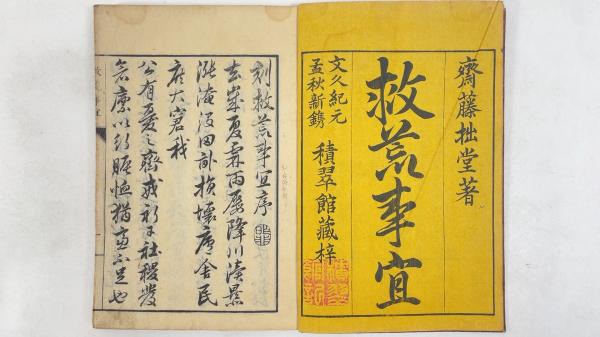 齋藤拙堂著
救荒事宜
文久紀元
孟秋新鐫
積翠館藏梓
刻救荒事宜序
去歳夏霖雨屡降川瀆暴
漲淹没田畝損壊廬舍民
庶大窘我
公有憂之齋戒祈于社稷發
倉廩以行賑恤猶慮不足也